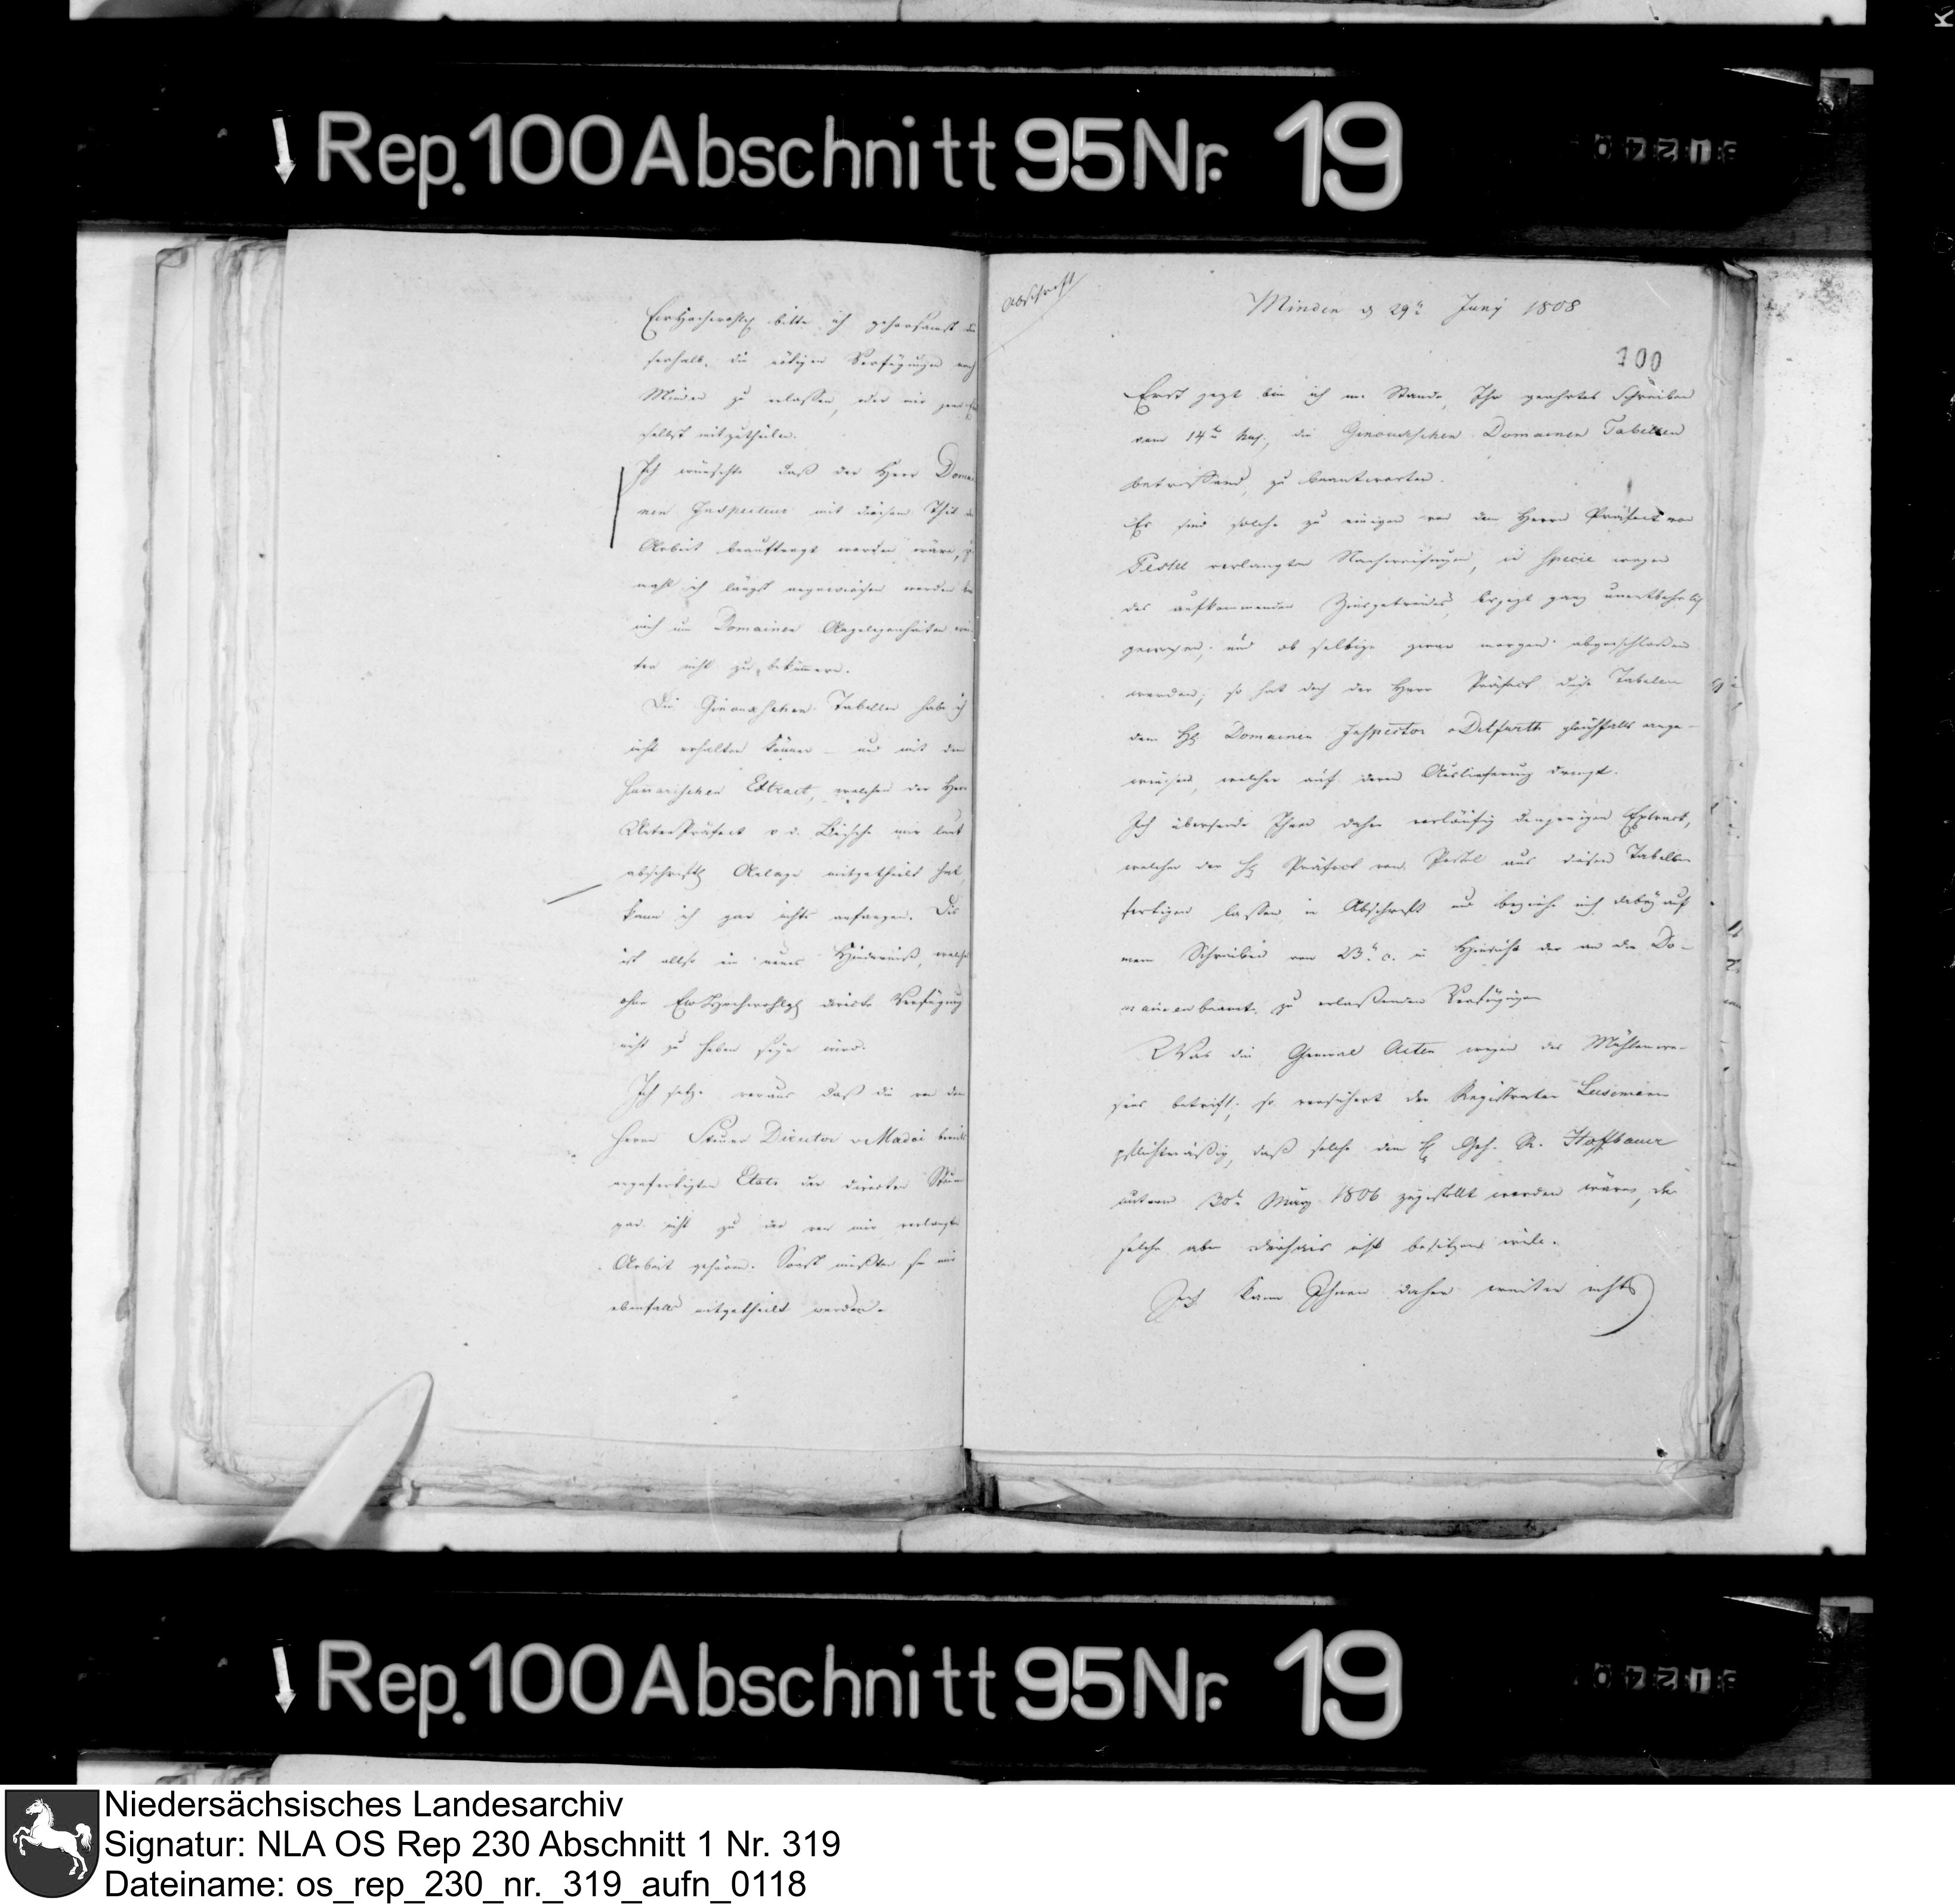 Rep. 100 Abschnitt 95 Nr. 19
EwHochwohlg bitte ich gehorsamst
deshalb, die nötigen Verfügungen nach
Minden zu erlassen, oder mir
selbst mitzutheilen.
Ich wünschte daß der Herr Domai
nen Inspecteur mit diesem Theil der
Arbeit beauftragt worden wäre,
ich längst angewiesen worden bin
mich um Domainen Angelegenheiten wei
ter nicht zu bekümern.
Die Tabellen habe ich
nicht erhalten können – und mit dem
Extract, welchen der Herr
UnterPräfect v. d. mir laut
abschriftl Anlage mitgetheilt hat,
kann ich gar nichts anfangen. Dis
ist also ein neues Hinderniß, welches
ohne EwHochwohlg directe Verfügung
nicht zu heben seyn wird.
Ich setze voraus daß die von dem
Herrn Steuer Director v Madai bereits
angefertigten Etats der directen Steuern
gar nicht zu der von mir verlangten
Arbeit gehören. Sonst müßten sie mir
ebenfalls mitgetheilt werden.
Abschrift
Minden d 29n Juny 1808
100
Erst jezt bin ich im Stande, Ihr geehrtes Schreiben
vom 14n huj., die Domainen Tabellen
betreffend, zu beantworten.
Es sind solche zu einigen von dem Herrn Präfect von
Pestel verlangten Nachweisungen, in specie wegen
des aufkommenden Zinsgetreides, bisjezt ganz unentbehrlich
gewesen; und ob selbige zwar morgen abgeschlossen
werden; so hat doch der Herr Präfect diese Tabellen
dem H Domainen Inspector v Ditfurth gleichfalls ange-
wiesen, welcher auf deren Auslieferung dringt.
Ich übersende Ihnen daher vorläufig denjenigen Extract,
welchen der H Präfect von Pestel aus diesen Tabellen
fertigen lassen, in Abschrift und beziehe mich dabey auf
mein Schreiben vom 23n c. in Hinsicht der an die Do-
mainenbeamte zu erlaßenden Verfügungen
Was die General Acten wegen des Mühlenwe-
sens betrift; so versichert der Registrator
pflichtmäßig, daß solche dem H Geh. R. Hoffbauer
unterm 30n März 1806 zugestellt worden wären, der
solche aber nicht besitzen will.
Ich kann Ihnen daher weiter nichts
Rep. 100 Abschnitt 95 Nr. 19
Niedersächsisches Landesarchiv
Signatur: NLA OS Rep 230 Abschnitt 1 Nr. 319
Dateiname: os_rep_230_nr._319_aufn_0118